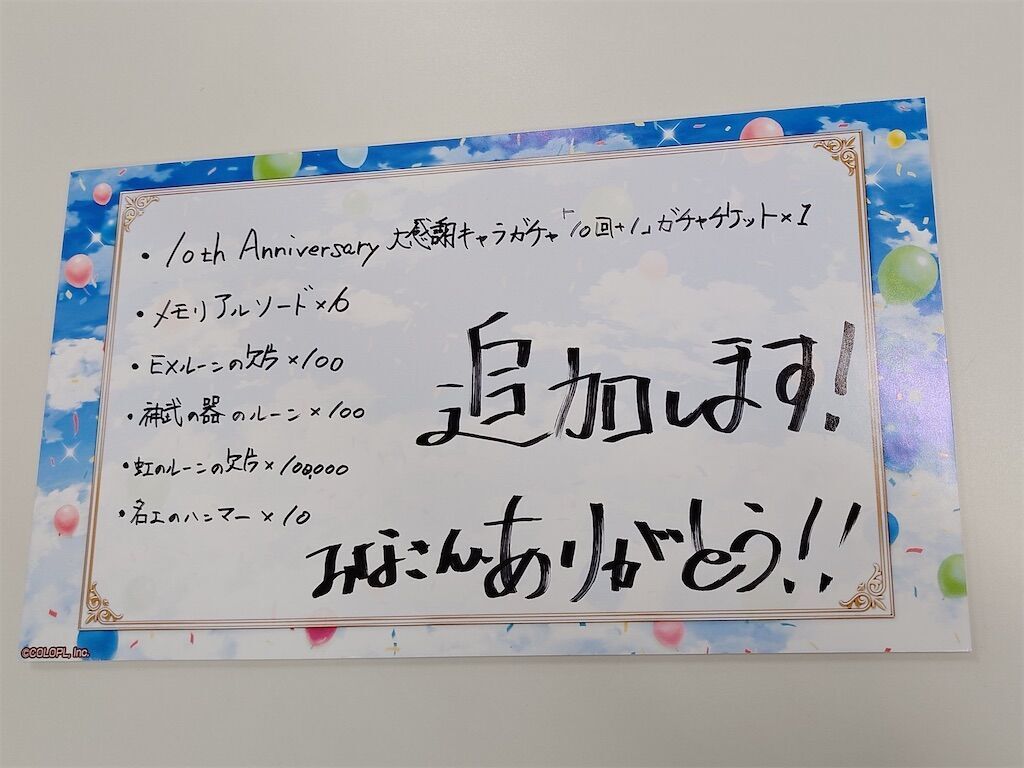 ・10th Anniversary 大感謝キャラガチャ「10回+1」ガチャチケット×1
・メモリアルソード×6
・EXルーンの欠片×100
・神式の器のルーン×100
・虹のルーンの欠片×100,000
・名工のハンマー×10
追加します!
みなこん、ありがとう!!
©COLOPL, Inc.